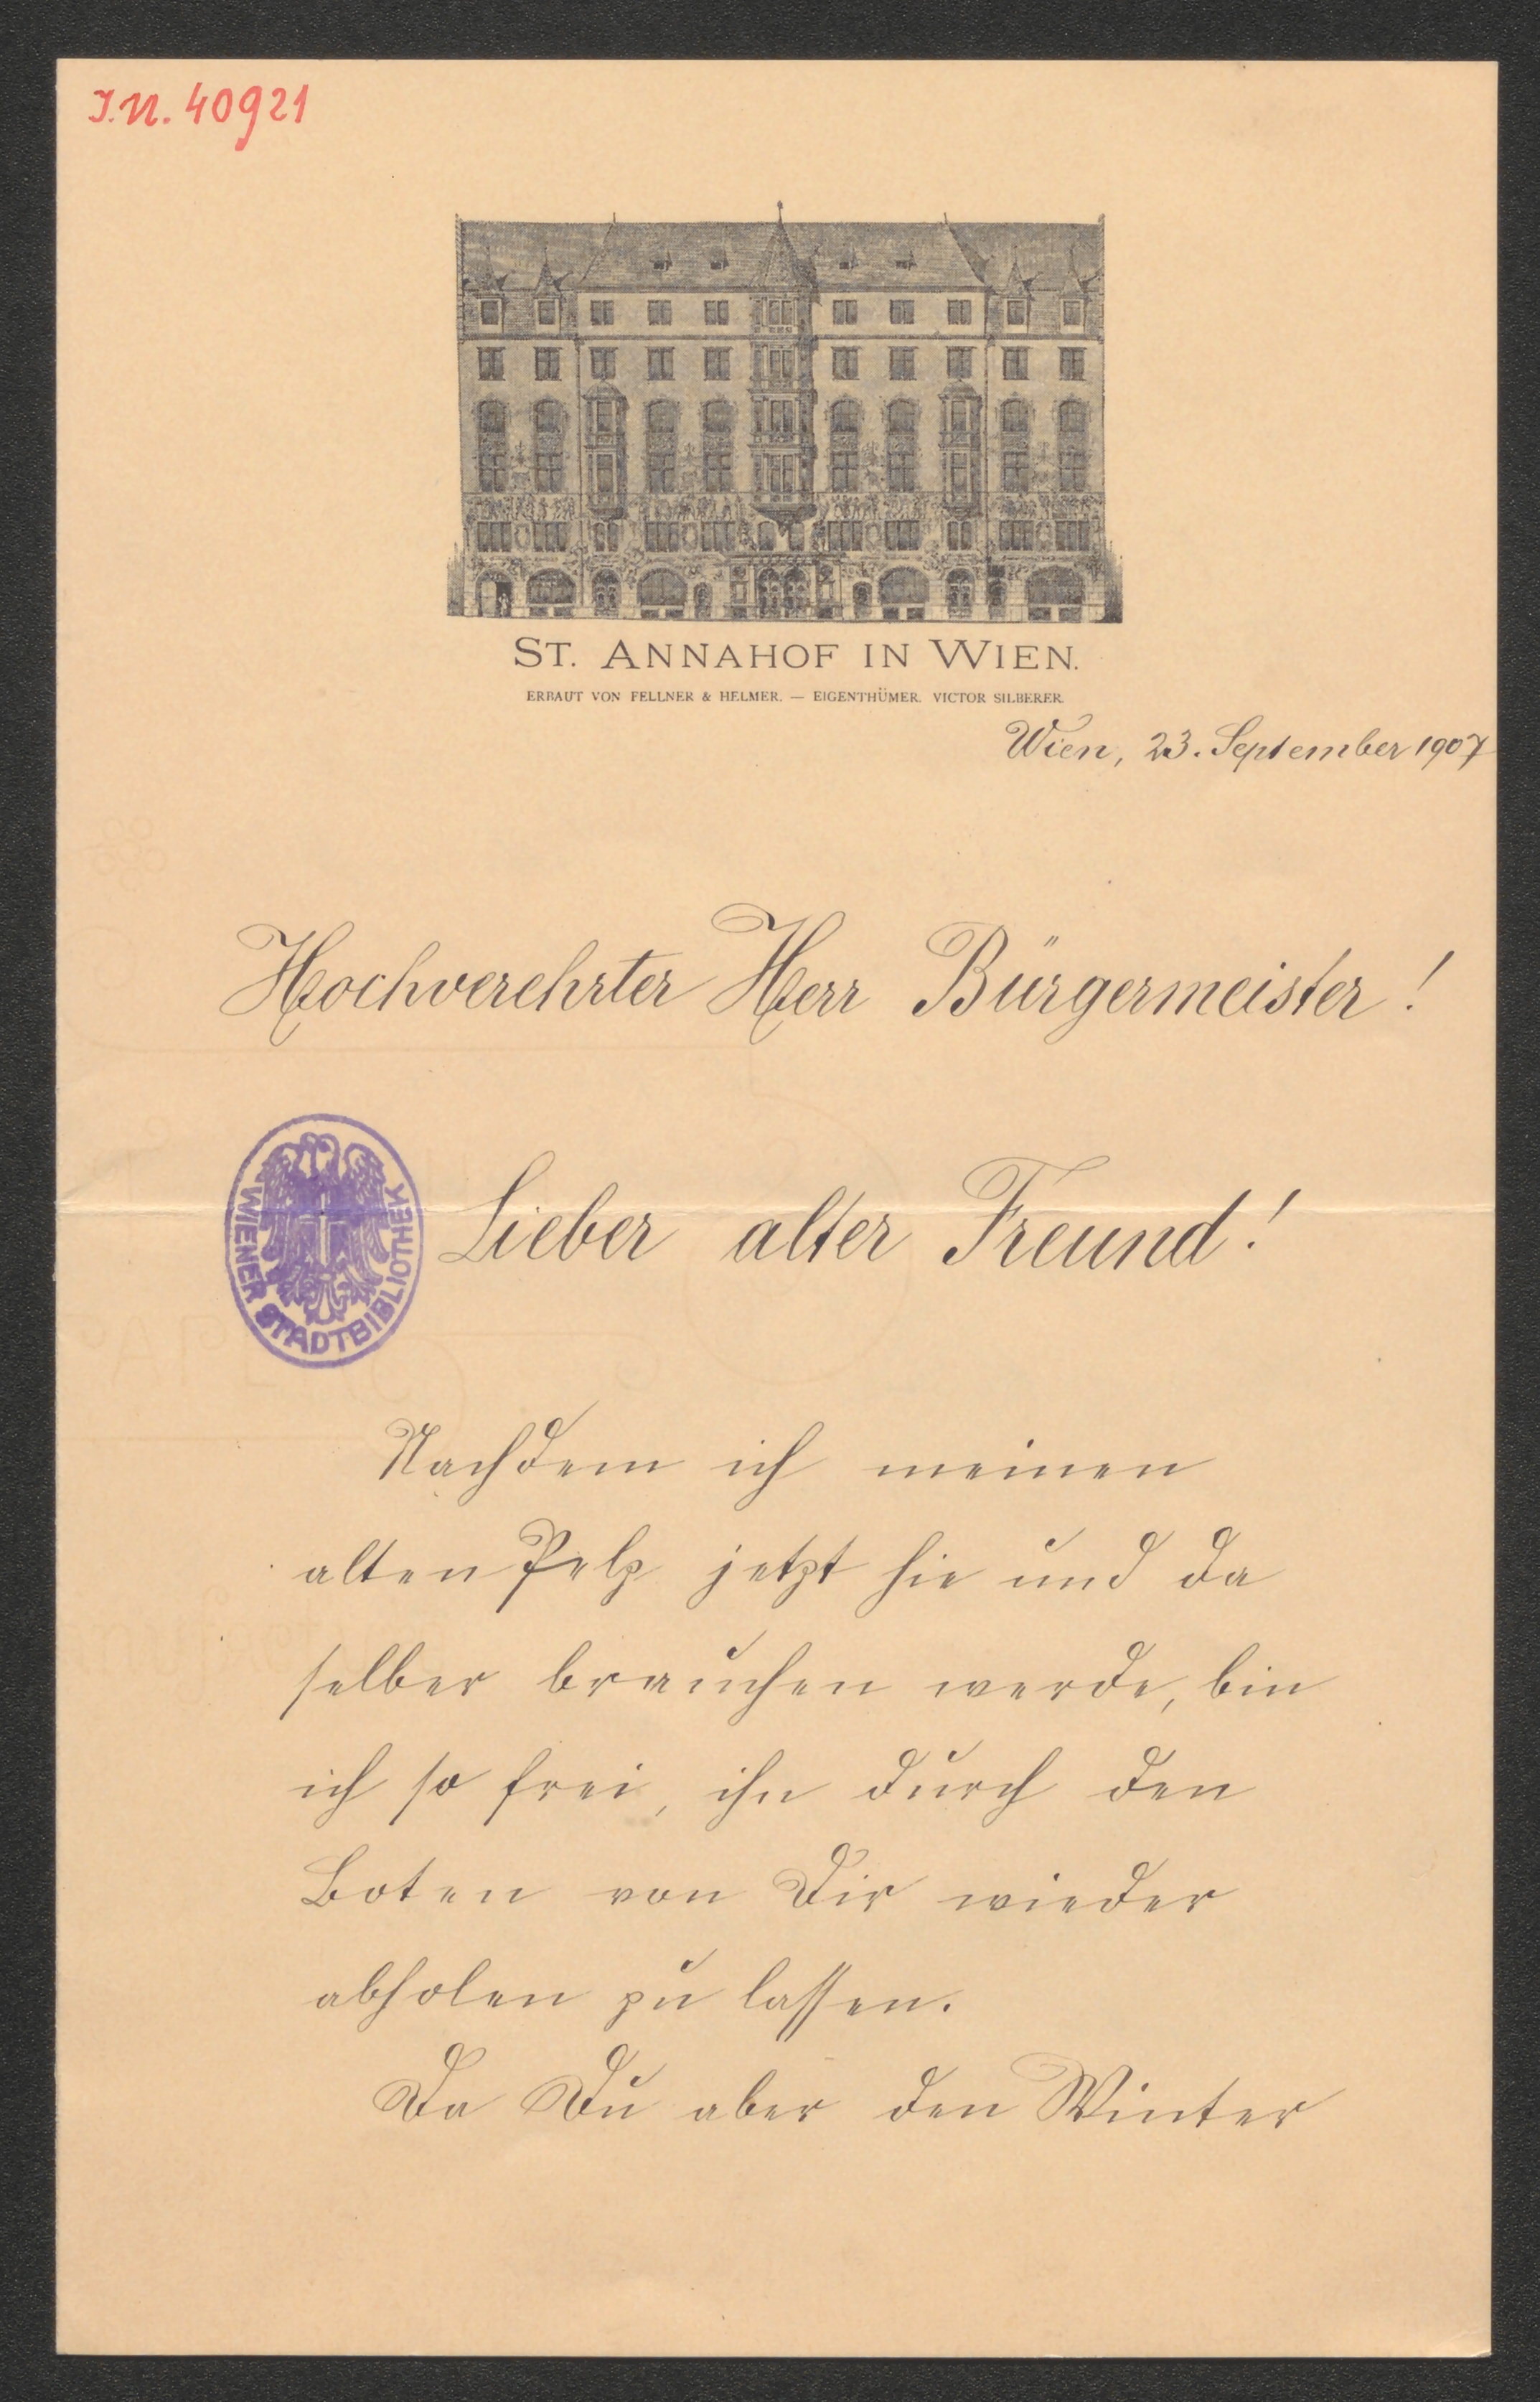 I.N. 40921
ST. ANNAHOF IN WIEN.
ERBAUT VON FELLNER & HELMER. — EIGENTHÜMER. VICTOR SILBERER.
Wien, 23. September 1907
Hochverehrter Herr Bürgermeister!
WIENER STADTBIBLIOTHEK
Lieber alter Freund!
Nachdem ich meinen
alten Pelz jetzt hie und da
selber brauchen werde, bin
ich so frei, ihn durch den
Boten von Dir wieder
abholen zu lassen.
Da Du aber den Winter